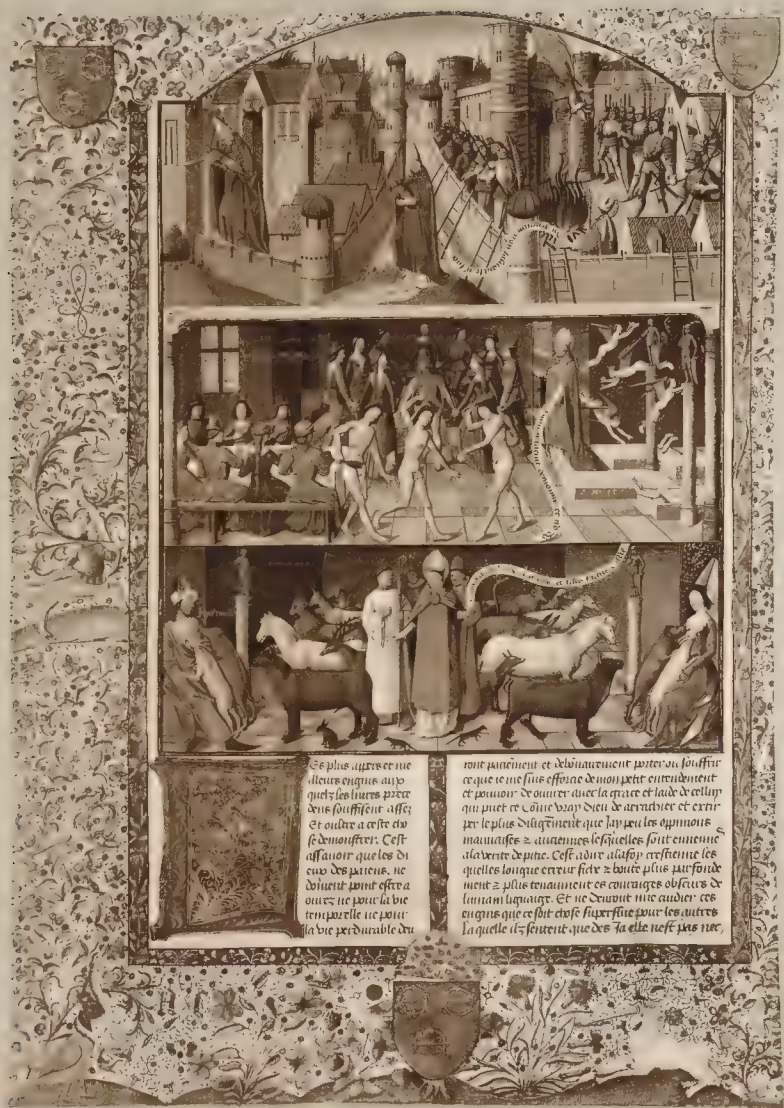 Es plus appers et me
illeurs engins aux
quelz les liures prece
dens souffisent assez
Et oultre a ceste cho
se demonstrer. Cest
assauoir que les di
eux des paiens. ne
doiuent point estre a
ourez ne pour la vie
temporelle ne pour
la vie perdurable deu
ront paciement et debonairement porter ou souffrir
ce que ie me suis efforcie de mon petit entendement
et pouoir de ouurer auec la grace et laide de cellui
qui puet ce Comme vray dieu de arrachier et extir
per le plus diligemment que Jay peu les oppinions
mauuaises ⁊ anciennes lesquelles sont ennemie
a la verite de pitie. Cest adire a la foy crestienne les
quelles longue erreur fichie ⁊ boute plus parfonde
ment ⁊ plus tenaument es couraiges obscurs de
lumain lignaige. Et ne deuront mie cuidier ces
engins que ce soit chose superflue pour les autres
laquelle ilz sentent que des Ja elle nest pas nec,